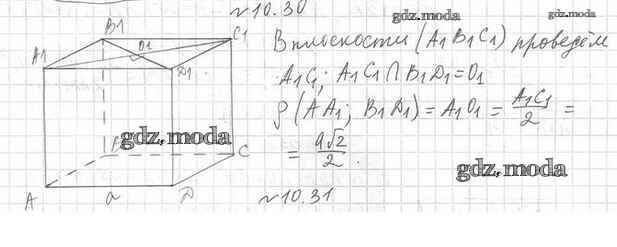 №10.30
gdz.moda
gdz.moda
B1
C1
O1
A1
D1
В плоскости (A1B1C1) проведём
A1C1; A1C1 ∩ B1D1 = O1
ρ(AA1; B1D1) = A1O1 = A1C1/2 =
= a√2/2.
gdz.moda
gdz.moda
B
C
A
a
D
№10.31